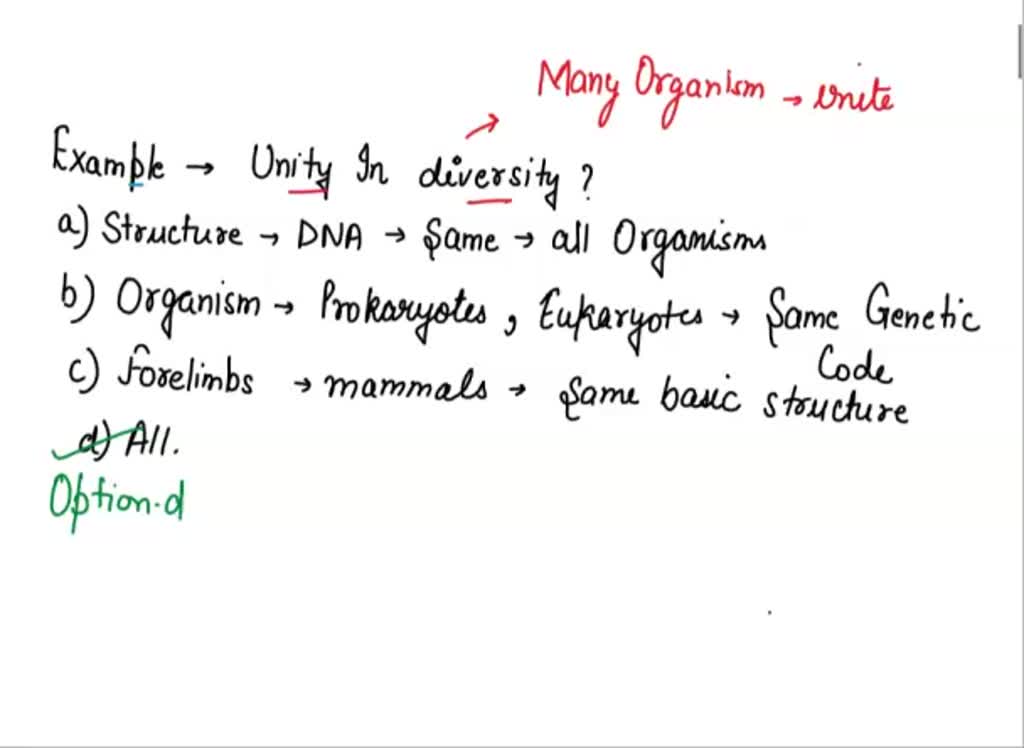 Many Organism → unite
Example → Unity In diversity ?
a) Structure → DNA → Same → all Organisms
b) Organism → Prokaryotes, Eukaryotes → Same Genetic
Code
c) forelimbs → mammals → Same basic structure
d) All.
Option.d